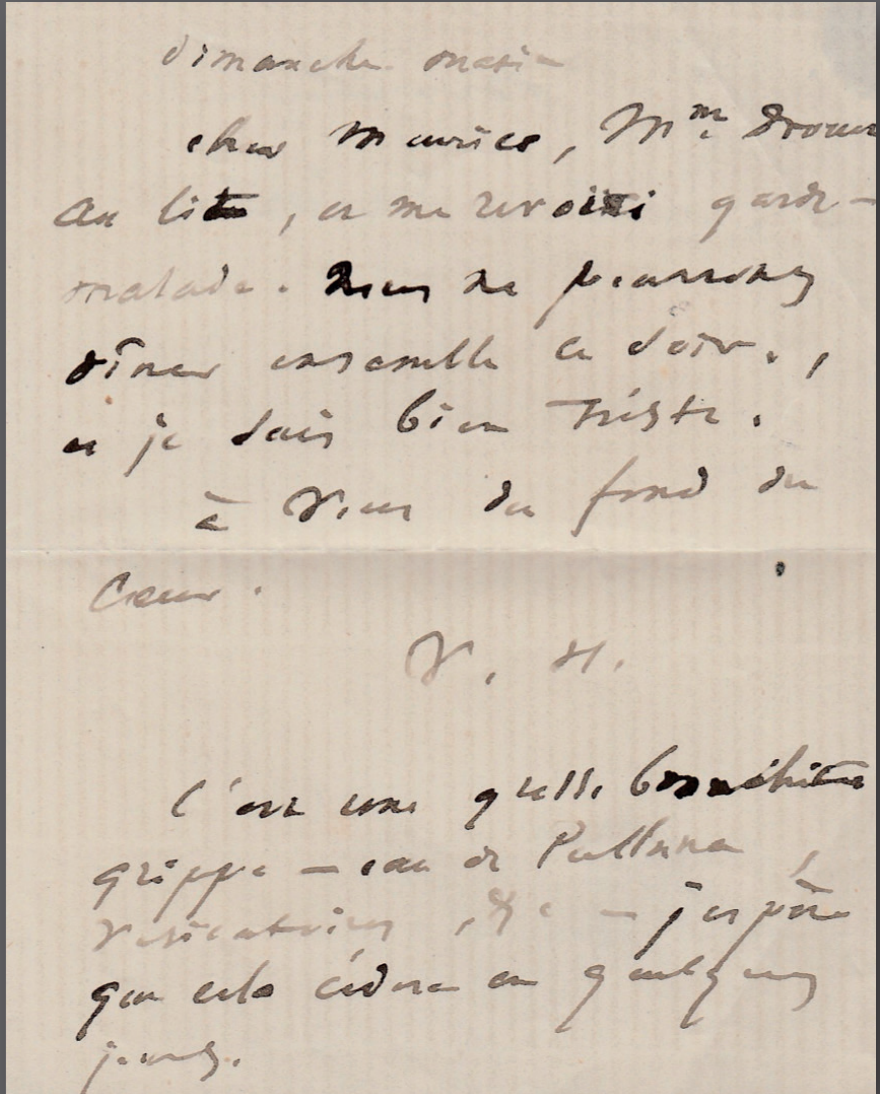 dimanche matin
cher Maurice, Mme Drouet
au lit, et me revoici garde-
malade. Nous ne pourrons
dîner ensemble ce soir.,
et je suis bien triste.
à vous du fond du
cœur.
V. H.
C'est une grosse bronchite
grippe — eau de Pullna,
vésicatoires, &c — j'espère
que cela cédera en quelques
jours.